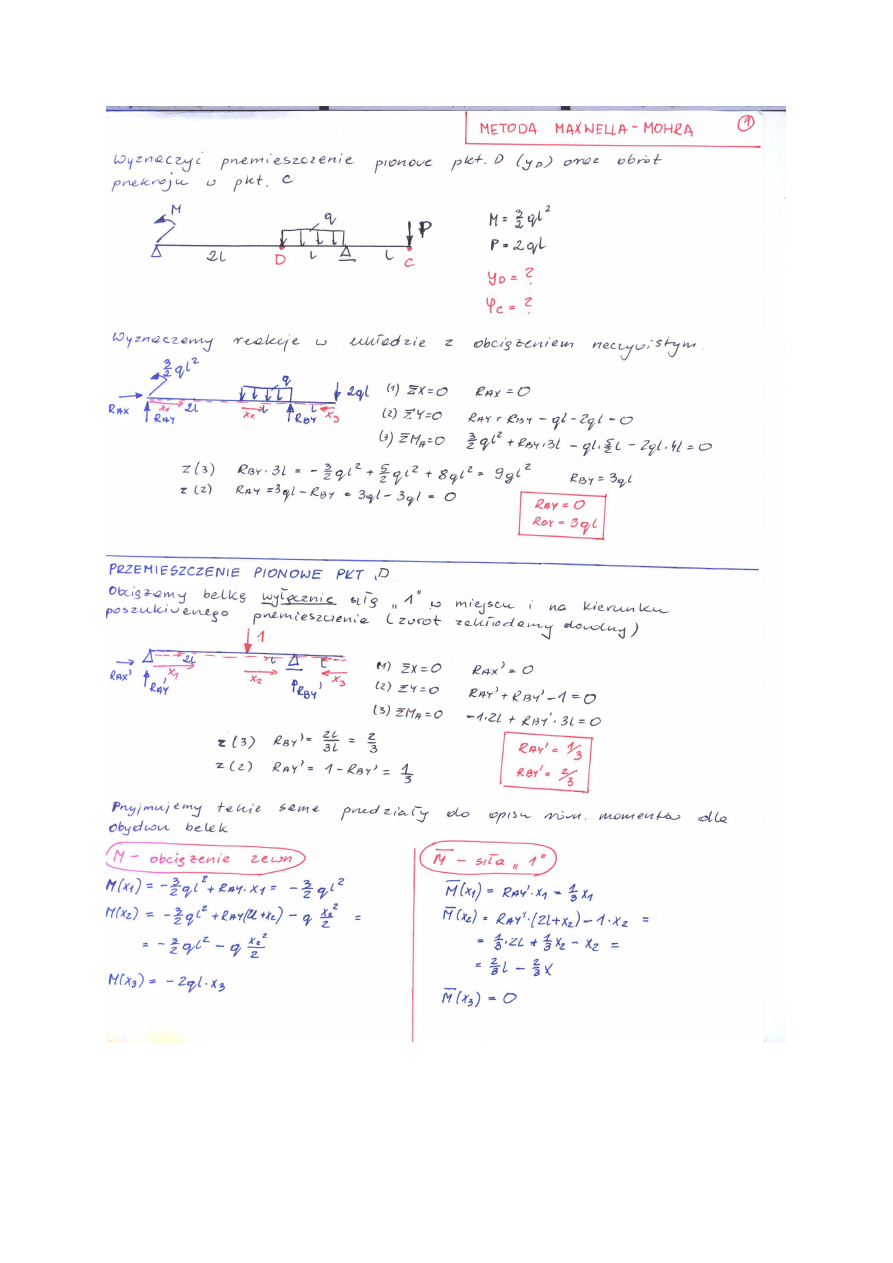 METODA MAXWELLA-MOHRA 1
Wyznaczyć przemieszczenie pionowe pkt. D (yD) oraz obrót
przekroju w pkt. C
M
q
P
2l D l l C
M = 3/2 ql²
P = 2ql
yD = ?
φC = ?
Wyznaczamy reakcje w układzie z obciążeniem rzeczywistym.
3/2 ql²
q
2ql
RAX RAY x1 2l x2 l RBY l x3
(1) ΣX=0 RAX = 0
(2) ΣY=0 RAY + RBY - ql - 2ql = 0
(3) ΣMA=0 3/2 ql² + RBY·3l - ql·5/2 l - 2ql·4l = 0
z (3) RBY·3l = -3/2 ql² + 5/2 ql² + 8ql² = 9ql² RBY = 3ql
z (2) RAY = 3ql - RBY = 3ql - 3ql = 0
RAY = 0
RBY = 3ql
PRZEMIESZCZENIE PIONOWE PKT D
Obciążamy belkę wyłącznie siłą „1" w miejscu i na kierunku
poszukiwanego przemieszczenia (zwrot zakładamy dowolny)
1
RAX' RAY' x1 2l x2 l RBY' l x3
(1) ΣX=0 RAX' = 0
(2) ΣY=0 RAY' + RBY' - 1 = 0
(3) ΣMA=0 -1·2l + RBY'·3l = 0
z (3) RBY' = 2l/3l = 2/3
z (2) RAY' = 1 - RBY' = 1/3
RAY' = 1/3
RBY' = 2/3
Przyjmujemy takie same przedziały do opisu równ. momentów dla
obydwu belek
M - obciążenie zewn
M(x1) = -3/2 ql² + RAY·x1 = -3/2 ql²
M(x2) = -3/2 ql² + RAY(2l+x2) - q x2²/2 =
= -3/2 ql² - q x2²/2
M(x3) = -2ql·x3
M̅ - siła „1"
M̅(x1) = RAY'·x1 = 1/3 x1
M̅(x2) = RAY'·(2l+x2) - 1·x2 =
= 1/3·2l + 1/3 x2 - x2 =
= 2/3 l - 2/3 x
M̅(x3) = 0